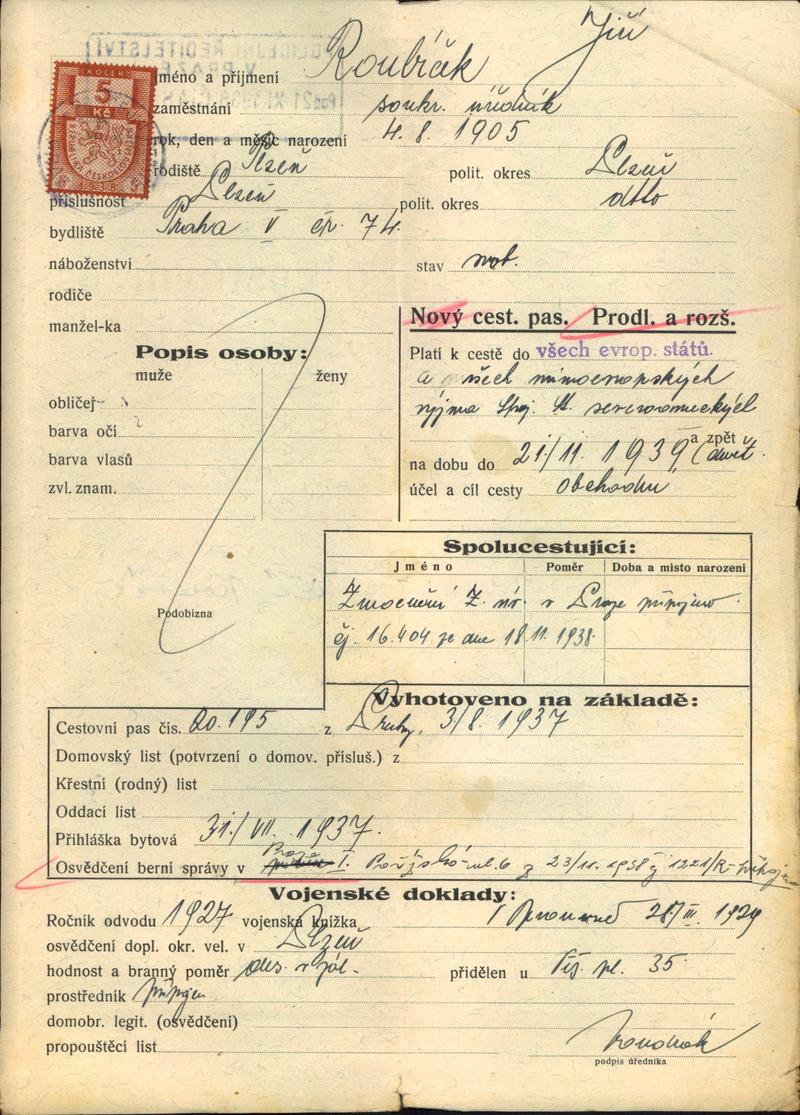 Jiří
POLICEJNÍ ŘEDITELSTVÍ
V PRAZE
KOLEK
5
Kč
1938
jméno a příjmení Roubíček
zaměstnání soukr. úředník
rok, den a měsíc narození 4. 8. 1905
rodiště Plzeň polit. okres Plzeň
příslušnost Plzeň polit. okres dtto
bydliště Praha V čp. 74.
náboženství stav svob.
rodiče
manžel-ka
Nový cest. pas. Prodl. a rozš.
Popis osoby:
muže ženy
obličej
barva očí
barva vlasů
zvl. znam.
Podobizna
Platí k cestě do všech evrop. států.
a všech mimoevropských
vyjma Spoj. St. severoamerických
a zpět
na dobu do 21/11. 1939
účel a cíl cesty obchodní
Spolucestující:
Jméno Poměr Doba a místo narození
Zmocnění Z. úř. v Praze připojeno
čj. 16.404 ze dne 18.11.1938.
Vyhotoveno na základě:
Cestovní pas čís. 20.195 z Prahy, 3/8. 1937
Domovský list (potvrzení o domov. přísluš.) z
Křestní (rodný) list
Oddací list
Přihláška bytová 31./VII. 1937.
Osvědčení berní správy v Praze I. z 23/11. 1938 čj 1221/R-
Vojenské doklady:
Ročník odvodu 1927 vojenská knížka 28/III. 1929
osvědčení dopl. okr. vel. v Plzeň
hodnost a branný poměr des. v zál. přidělen u Pěš. pl. 35
prostředník připojen
domobr. legit. (osvědčení)
propouštěcí list
podpis úředníka